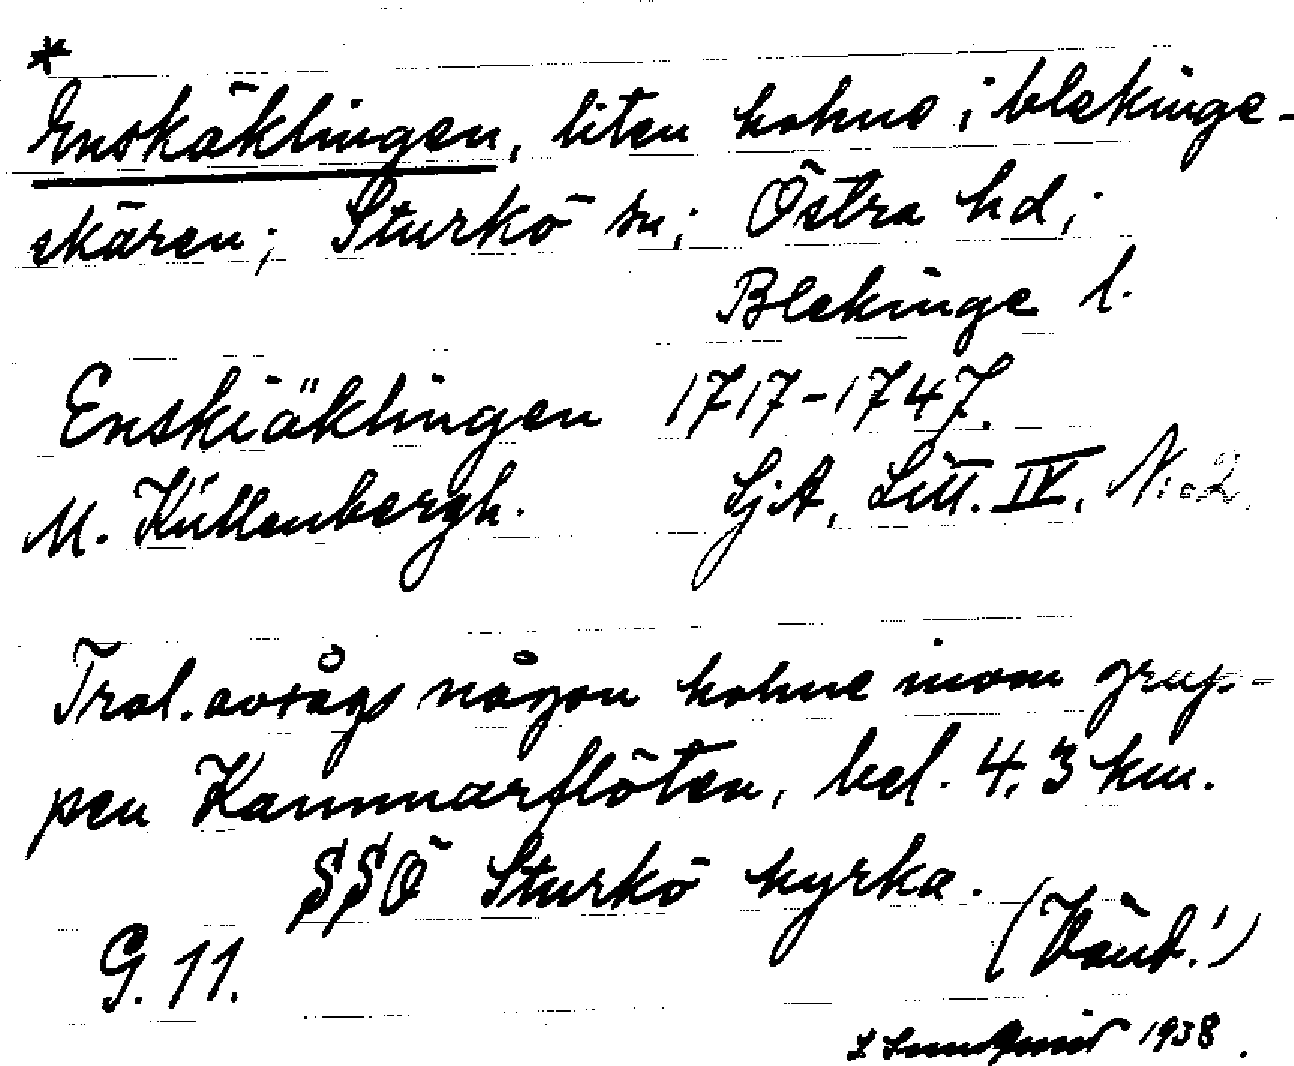 *
Enskäklingen, liten kohne i blekinge-
skären; Sturkö sn; Östra hd;
Blekinge l.
Enskiäklingen 1717-1747.
M. Küllenbergh. SjA, Litt. IV, N:o 2
Trol. avsågs någon kohne inom grup-
pen Kammarflöten, bel. 4,3 km.
SSÖ Sturkö kyrka.
G. 11. (Vänd!)
1938.